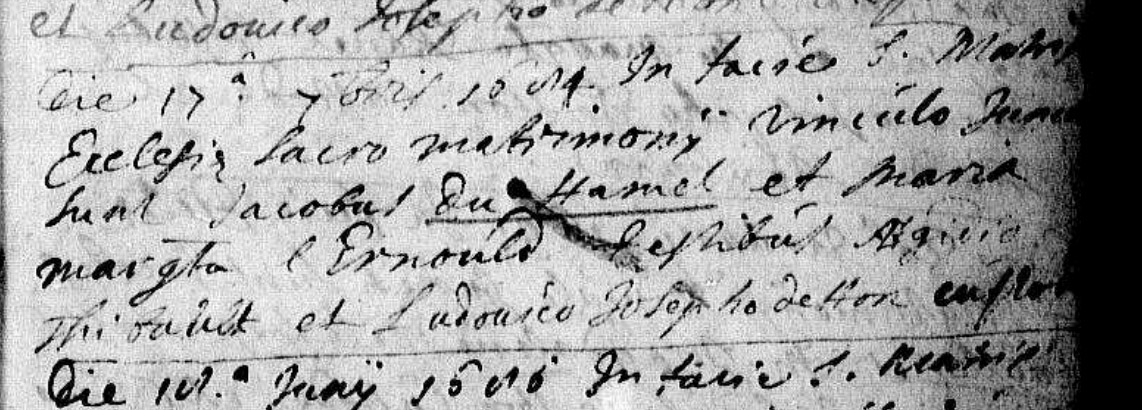 et Ludovico Josepho
Die 17ª 7bris 1684 In facie S. Matris
Ecclesię sacro matrimonÿ vinculo Junc
sunt Jacobus du Hamel et Maria
margta l'Ernould testibus Ægidio
Thibault et Ludovico Josepho deHon
Die 18.ª Junÿ 1686 In facie S. Matris